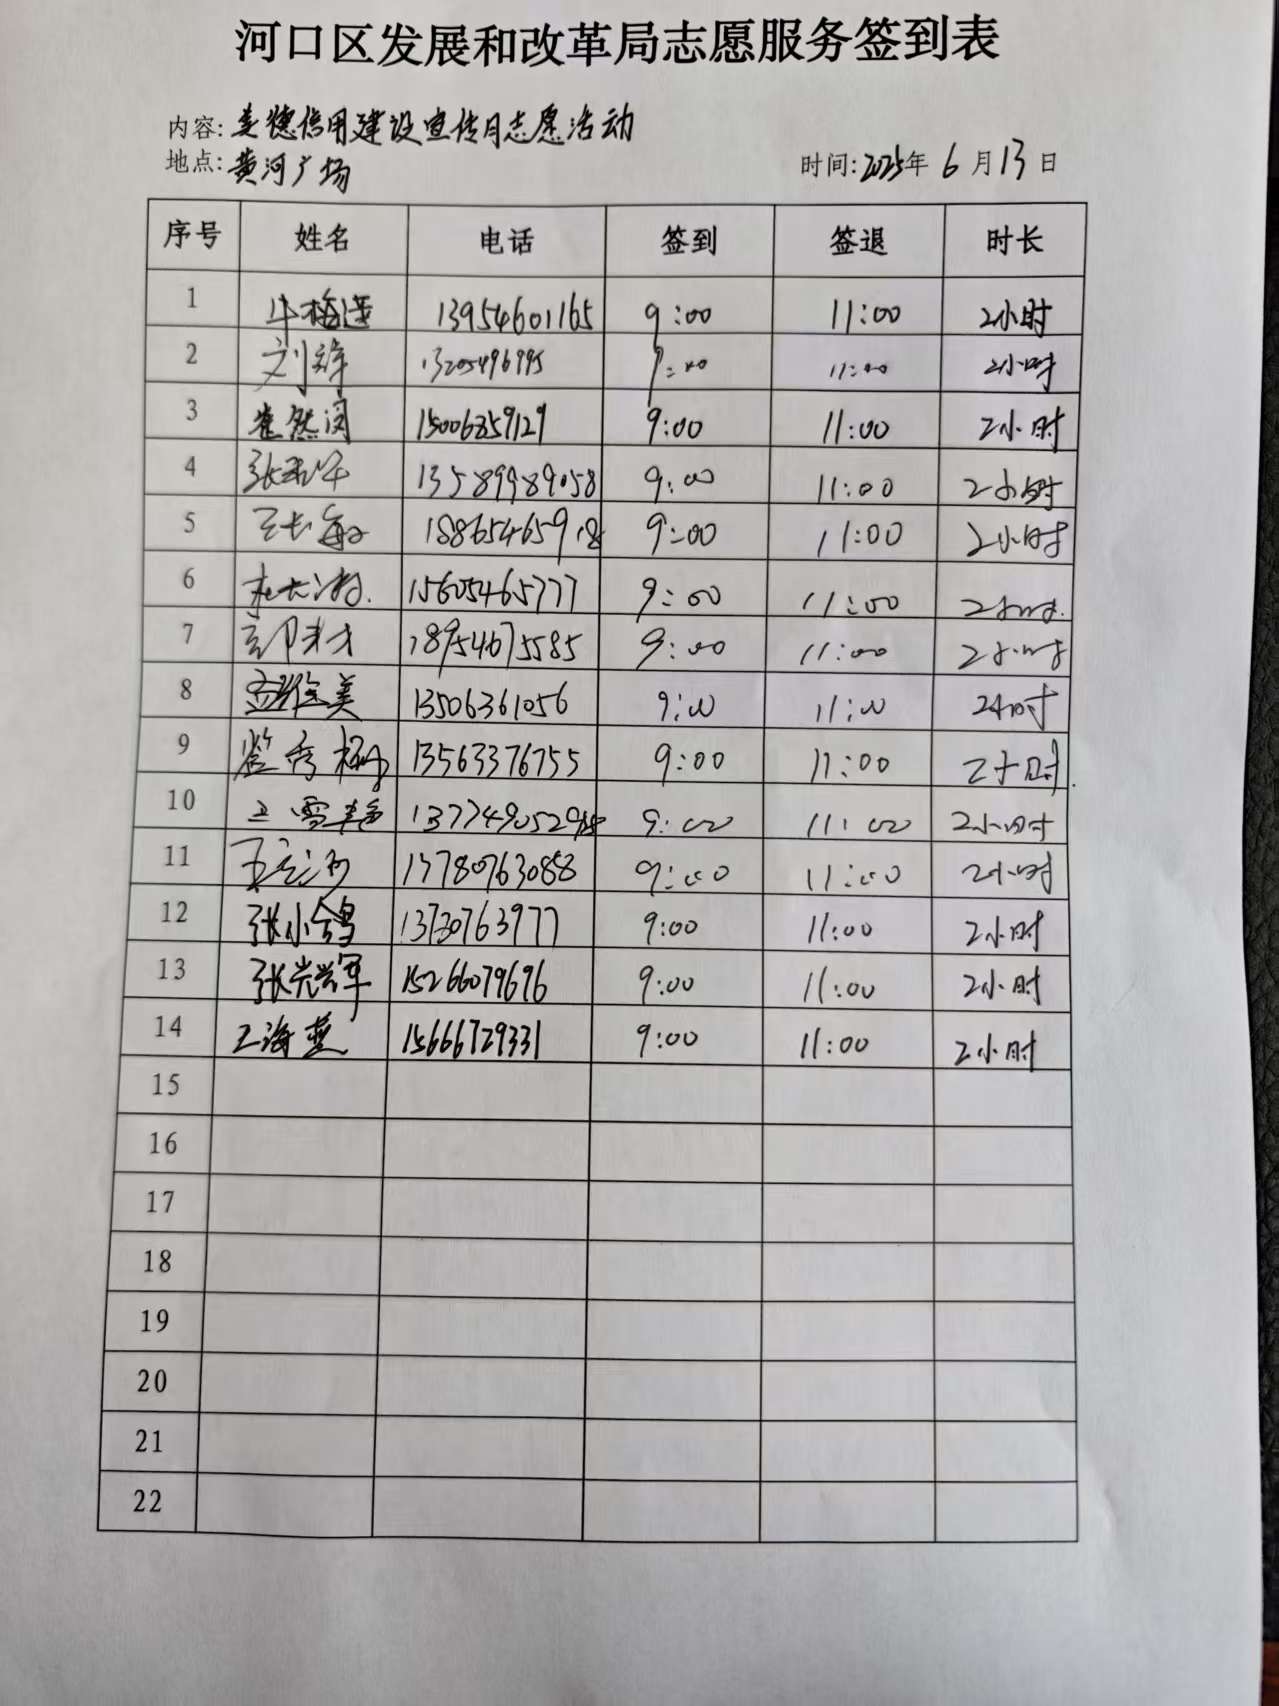 河口区发展和改革局志愿服务签到表
内容: 美德信用建设宣传月志愿活动
地点: 黄河广场 时间: 2025年 6 月 13 日
序号 姓名 电话 签到 签退 时长
1 牛梅莲 13954601165 9:00 11:00 2小时
2 刘 9:00 11:00 2小时
3 崔然闵 15006359129 9:00 11:00 2小时
4 张 13589989058 9:00 11:00 2小时
5 王长敏 9:00 11:00 2小时
6 15605465777 9:00 11:00 2小时
7 18954675585 9:00 11:00 2小时
8 美 13506361056 9:00 11:00 2小时
9 秀 13563376755 9:00 11:00 2小时
10 王雪艳 9:00 11:00 2小时
11 王 13780763088 9:00 11:00 2小时
12 张小鸽 13730763977 9:00 11:00 2小时
13 张兴军 15266079676 9:00 11:00 2小时
14 王海燕 15666729331 9:00 11:00 2小时
15
16
17
18
19
20
21
22